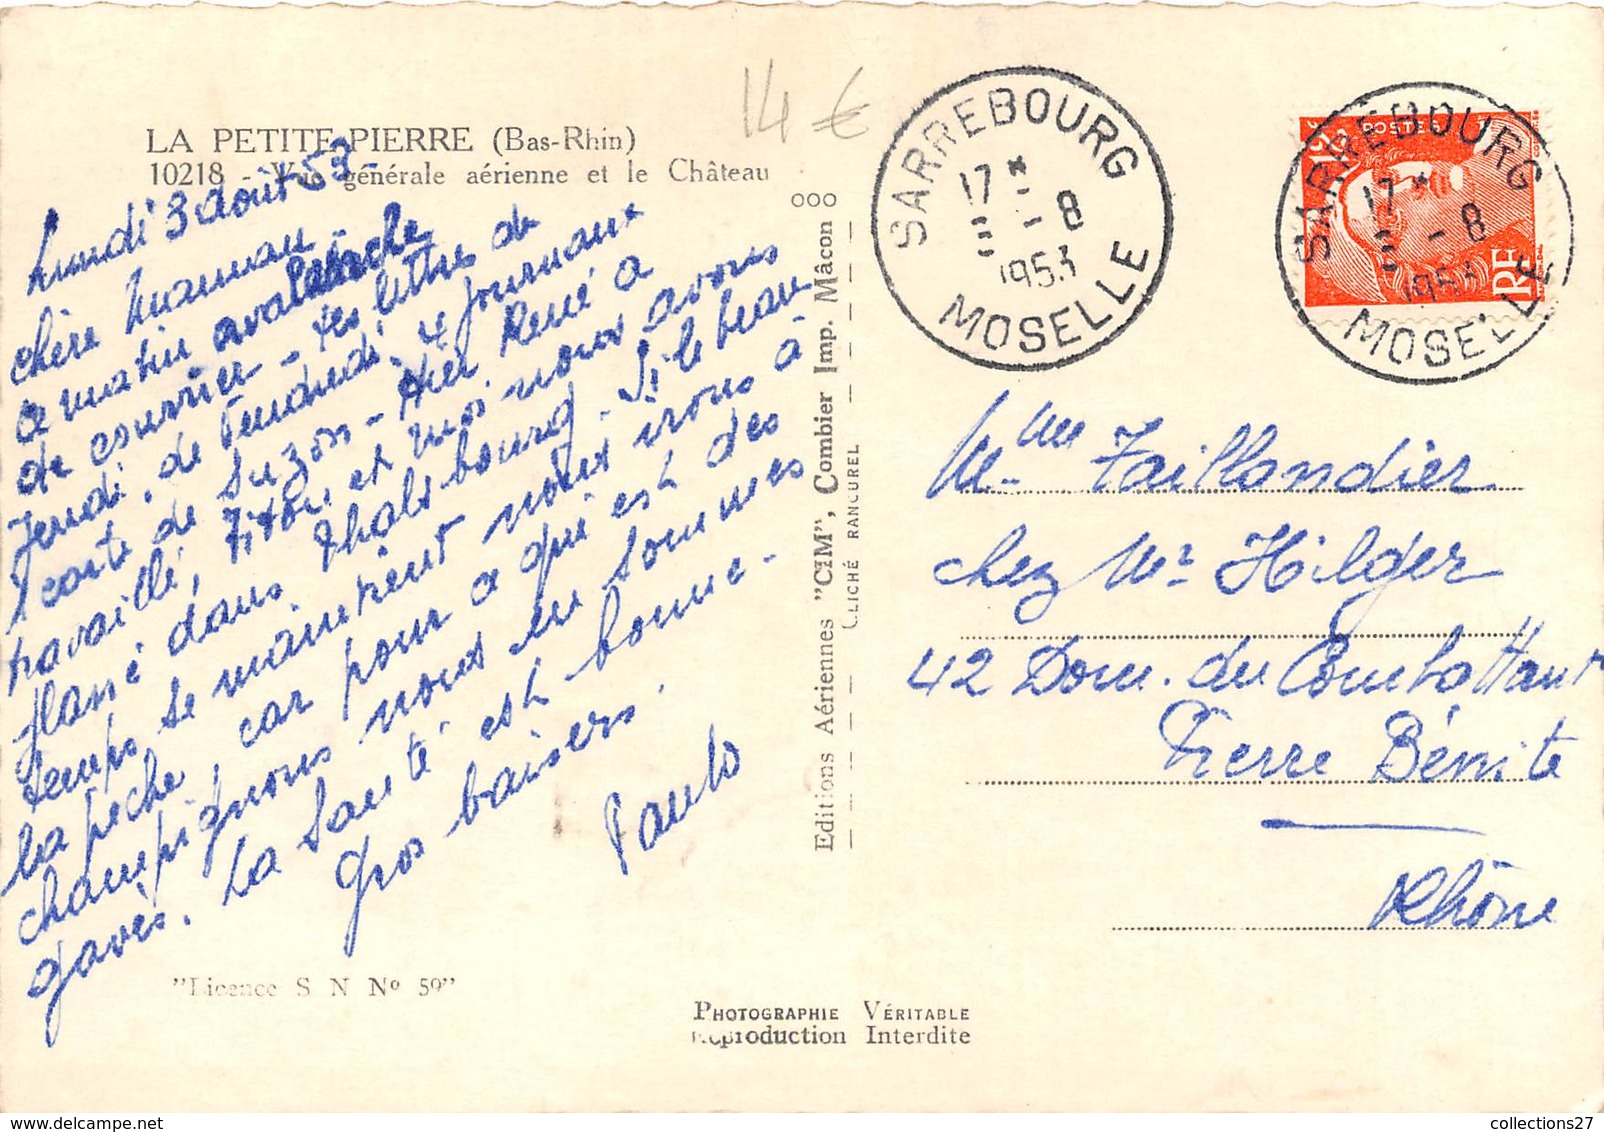 14 €
LA PETITE-PIERRE (Bas-Rhin)
10218 - Vue générale aérienne et le Château
Lundi 3 août 53 -
chère maman
ce matin avalanche
de courrier - tes lettres de
Jeudi, de Vendredi, 4 journaux
1 carte de Suzon - Hier René a
travaillé, Titou et moi nous avons
flané dans Phalsbourg. Si le beau
temps se maintient nous irons à
la pêche, car pour ce qui est des
champignons nous en sommes
gavés. La santé est bonne -
Gros baisers.
Paulo
"Licence S N No 59"
Editions Aériennes "CIM", Combier Imp. Mâcon ooo
CLICHÉ RANCUREL
PHOTOGRAPHIE VÉRITABLE
Reproduction Interdite
SARREBOURG
17 *
3 - 8
1953
MOSELLE
POSTES
RF
SARREBOURG
17 *
3 - 8
1953
MOSELLE
Mme Taillandier
chez Mr Hilger
42 Dom. du Combattant
Pierre Bénite
Rhône
collections27